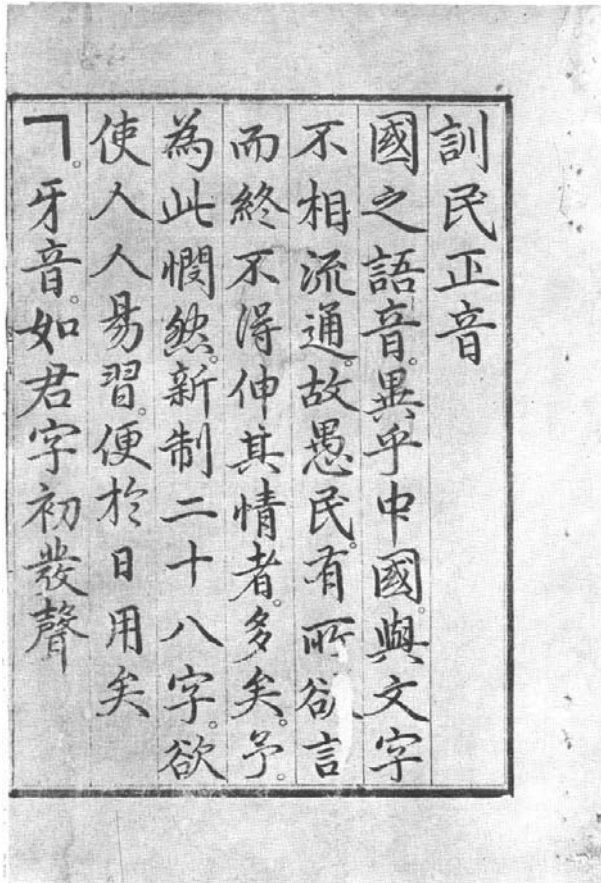 訓民正音
國之語音。異乎中國。與文字
不相流通。故愚民。有所欲言
而終不得伸其情者。多矣。予。
為此憫然。新制二十八字。欲
使人人易習。便於日用矣
ㄱ。牙音。如君字初發聲